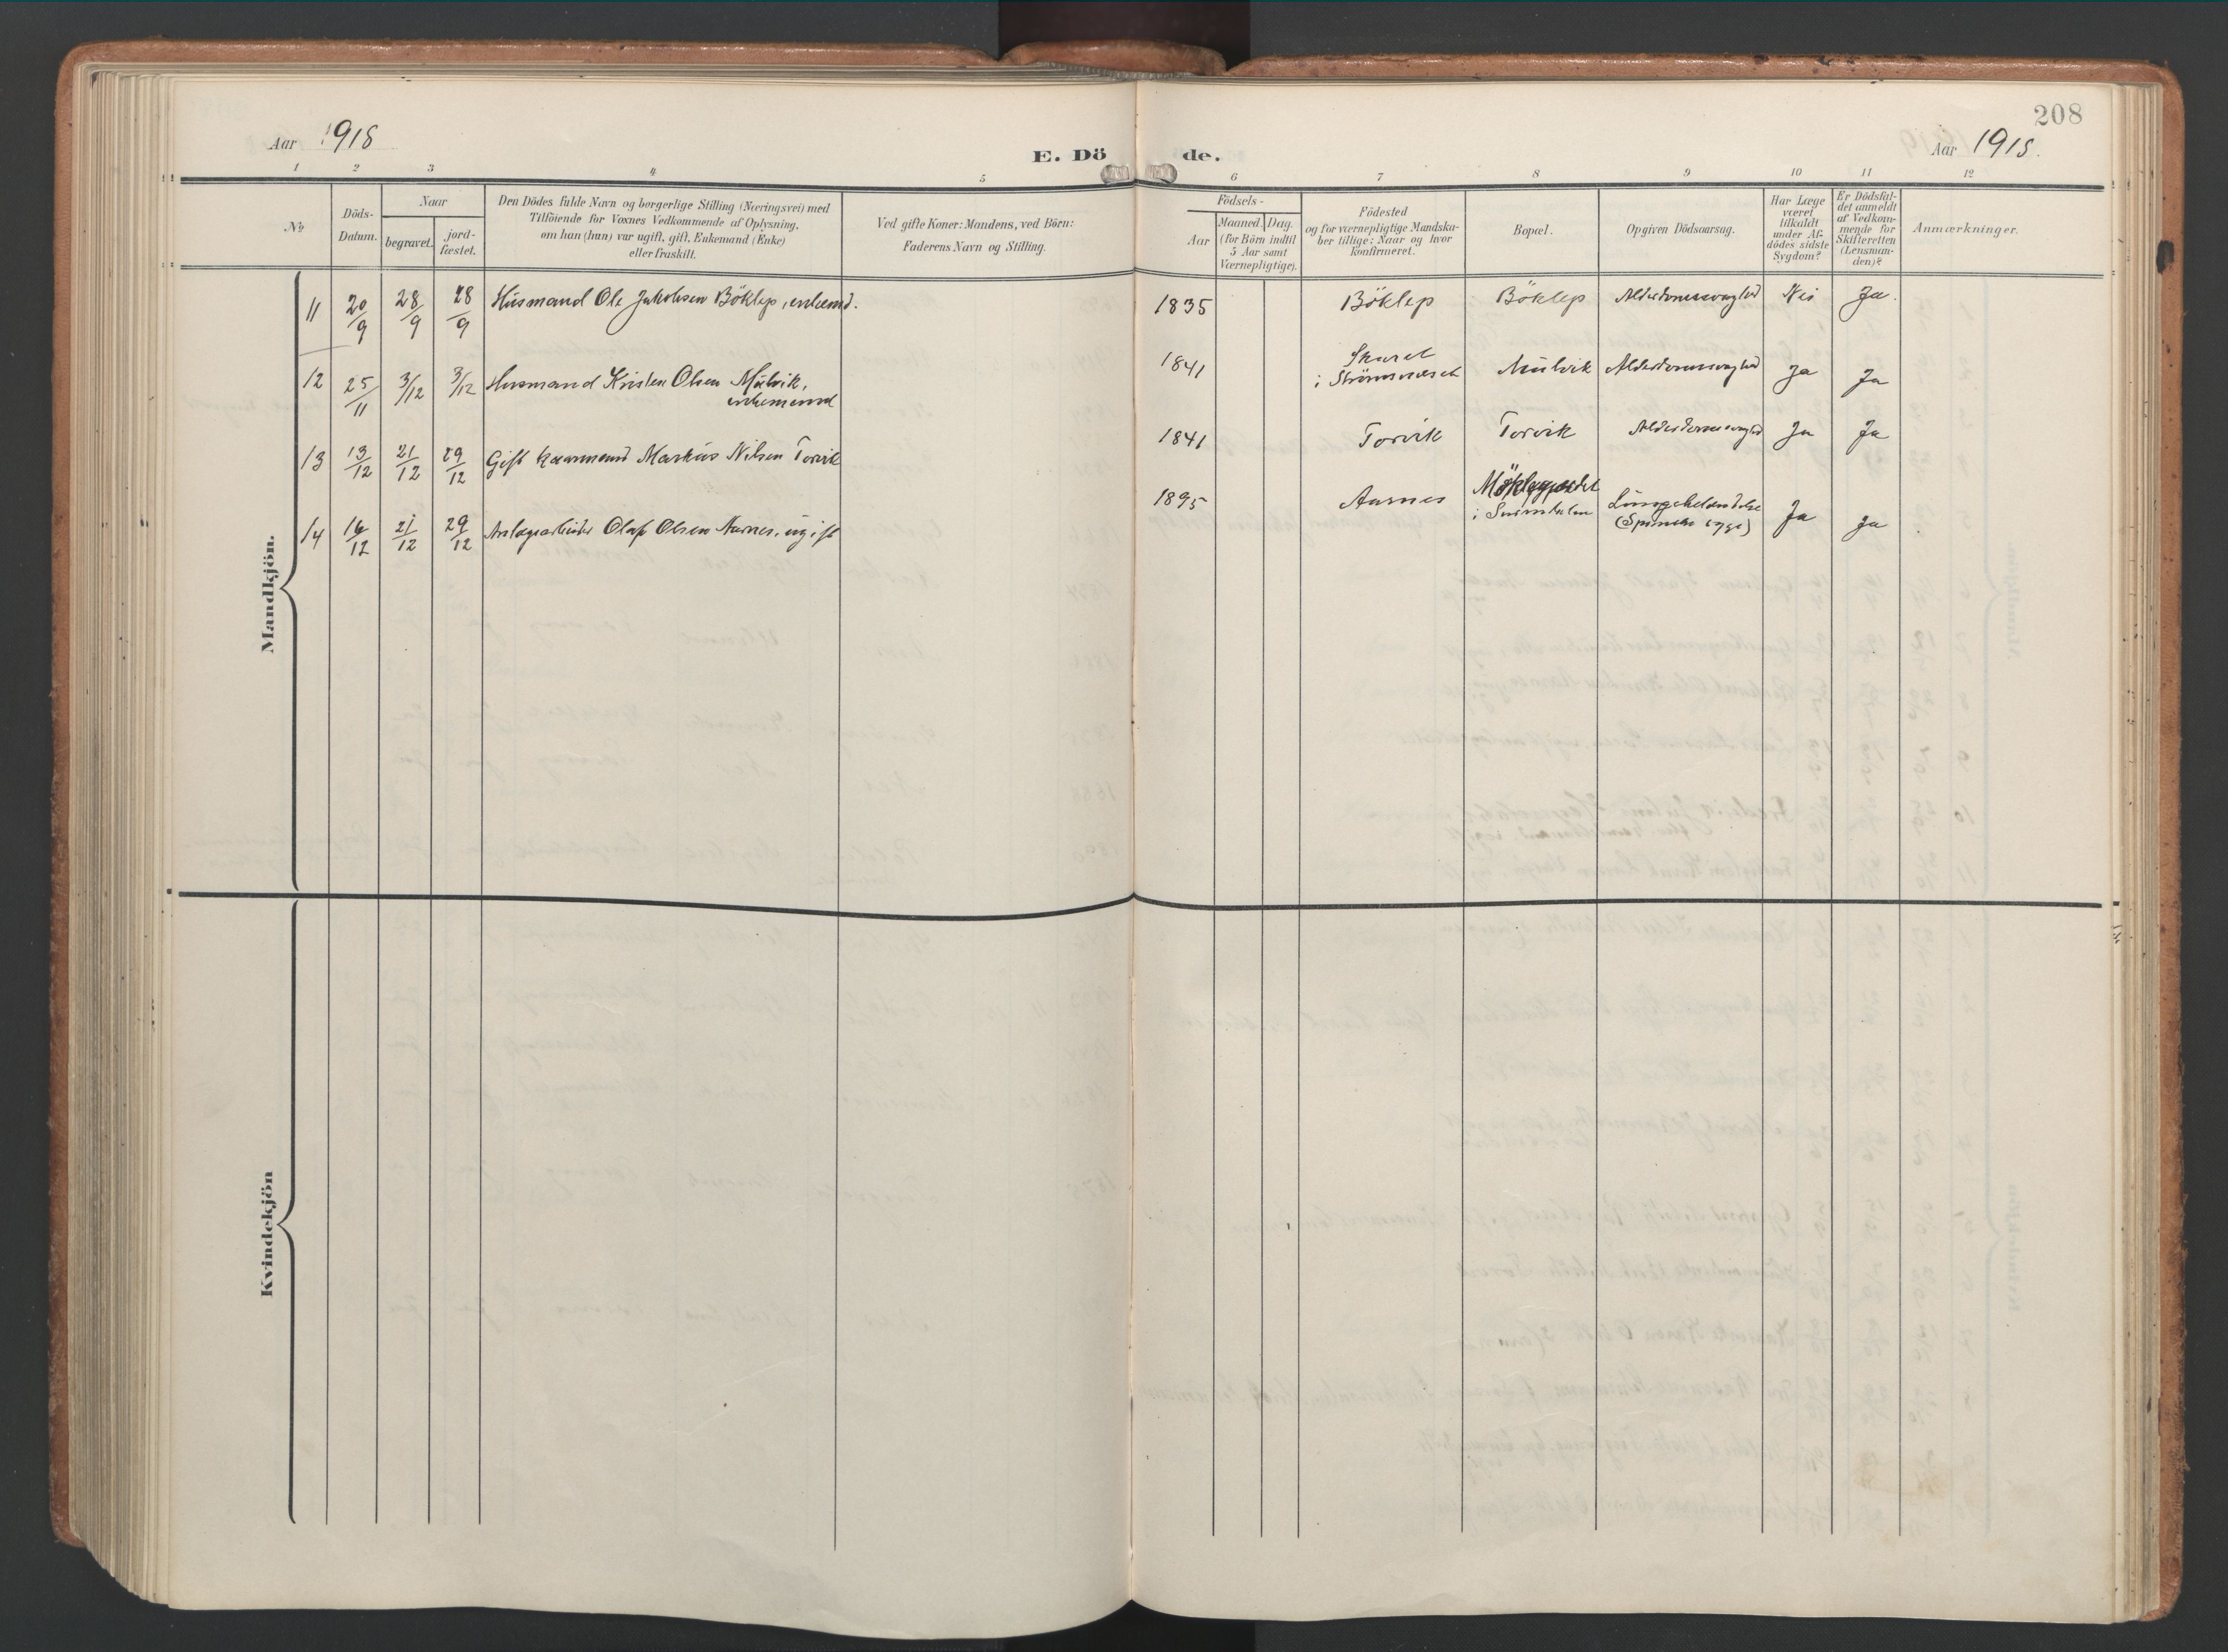 208
Aar 1918
E. Dö de.
Aar 1918.
1 2 3 4 5 6 7 8 9 10 11 12
No
Döds-
Datum.
Naar
begravet.
jord-
fæstet.
Den Dödes fulde Navn og borgerlige Stilling (Næringsvei) med
Tilföiende for Voxnes Vedkommende af Oplysning,
om han (hun) var ugift, gift, Enkemand (Enke)
eller fraskilt.
Ved gifte Koner: Mandens, ved Börn:
Faderens Navn og Stilling.
Födsels-
Aar
Maaned. Dag.
(for Börn indtil
5 Aar samt
Værnepligtige).
Födested
og for værnepligtige Mandska-
ber tillige: Naar og hvor
konfirmeret.
Bopæl.
Opgiven Dödsaarsag.
Har Læge
været
tilkaldt
under Af-
dödes sidste
Sygdom?
Er Dödsfal-
det anmeldt
af Vedkom-
mende for
Skifteretten
(Lensman-
den)?
Anmærkninger.
Mandkjön.
11 20/9 28/9 28/9 Husmand Ole Jakobsen Böklep, enkemd. 1835 Böklep Böklep Alderdomssvaghed Nei Ja.
12 25/11 3/12 3/12 Husmand Kristen Olsen Mulvik,
enkemand
1841 Skaret
i Mulvik Alderdomssvaghed Ja Ja
13 13/12 21/12 29/12 Gift kaarmand Markus Nilsen Torvik 1841 Torvik Torvik Alderdomssvaghed Ja Ja
14 16/12 21/12 29/12 Anlægsarbeider Olaf Olsen Aarnes, ugift 1895 Aarnes
i Lungebetændelse
(Spanske syge) Ja Ja
Kvindekjön